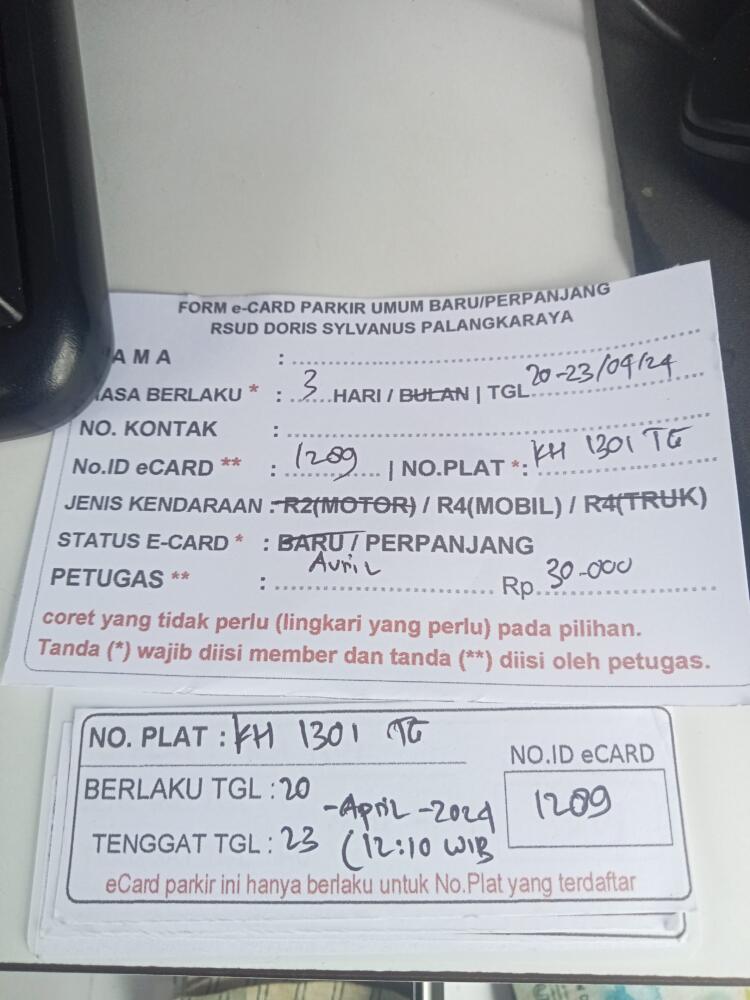 FORM e-CARD PARKIR UMUM BARU/PERPANJANG
RSUD DORIS SYLVANUS PALANGKARAYA
AMA :
ASA BERLAKU * : 3 HARI / BULAN | TGL 20-23/04/24
NO. KONTAK :
No.ID eCARD ** : 1209 | NO.PLAT *: KH 1301 TG
JENIS KENDARAAN : R2(MOTOR) / R4(MOBIL) / R4(TRUK)
STATUS E-CARD * : BARU / PERPANJANG
PETUGAS ** : Avril Rp 30-000
coret yang tidak perlu (lingkari yang perlu) pada pilihan.
Tanda (*) wajib diisi member dan tanda (**) diisi oleh petugas.
NO. PLAT : KH 1301 TG
NO.ID eCARD
BERLAKU TGL : 20
-April -2024
1209
TENGGAT TGL : 23 (12:10 WIB
eCard parkir ini hanya berlaku untuk No.Plat yang terdaftar